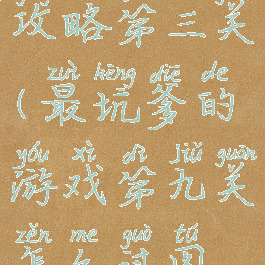 攻略第三关
zuì kēng diē de
(最坑爹的
yóu xì dì jiǔ guān
游戏第九关
zěn me guò tú